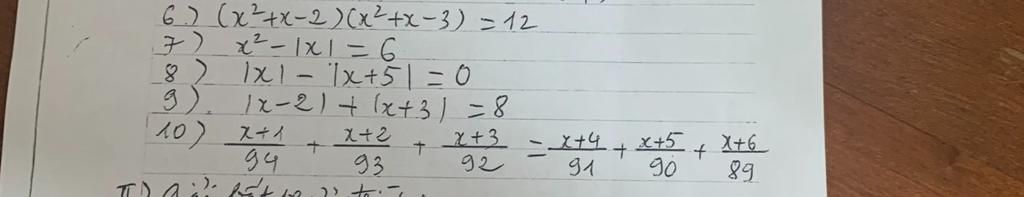 6.) (x²+x-2)(x²+x-3) = 12
7) x² - |x| = 6
8) |x| - |x+5| = 0
9) |x-2| + |x+3| = 8
10) x+1/94 + x+2/93 + x+3/92 = x+4/91 + x+5/90 + x+6/89
II)